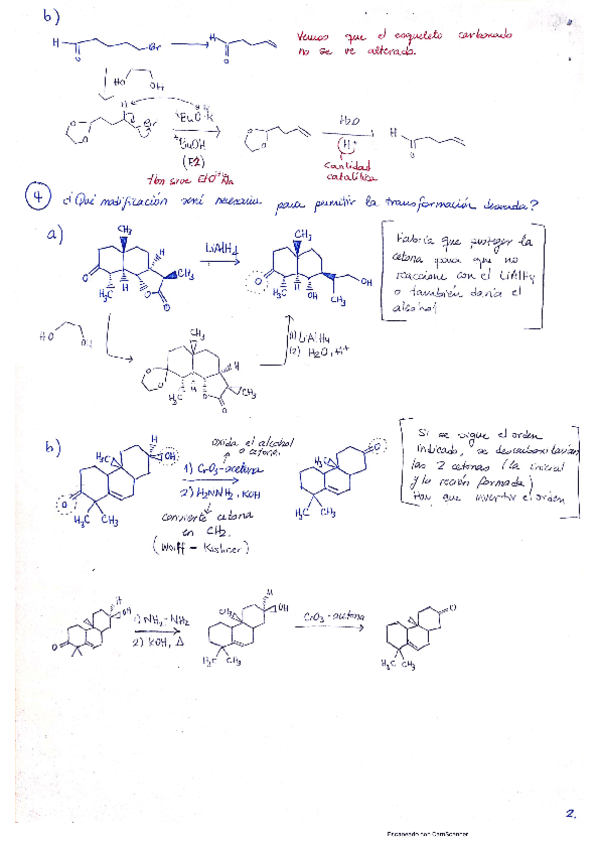 b)
H
O
Br
H
O
Vemos que el esqueleto carbonado
no se ve alterado.
HO
OH
H
Br
tBuOH
(E2)
H2O
H+
H
O
cantidad
catalítica
tbn sirve EtO Na
4
¿Qué modificación será necesaria para permitir la transformación deseada?
a)
CH3
H
CH3
O
H3C
H
O
O
LiAlH4
CH3
H
OH
O
H3C
H
OH
CH3
Habría que proteger la
cetona para que no
reaccione con el LiAlH4
o también daría el
alcohol
HO
OH
CH3
H
CH3
O
O
H3C
H
O
O
1) LiAlH4
2) H2O, H+
b)
oxida el alcohol
a cetona.
H
H3C
OH
O
H3C
CH3
1) CrO3-acetona
2) H2NNH2, KOH
convierte cetona
en CH2.
(Wolff - Kishner)
H3C
O
H3C
CH3
Si se sigue el orden
indicado, se descarbonilarían
las 2 cetonas (la inicial
y la recién formada)
Hay que invertir el orden
H
OH
O
1) NH2-NH2
2) KOH, Δ
H
CH3
OH
H3C
CH3
CrO3-acetona
O
H3C
CH3
2.
Escaneado con CamScanner